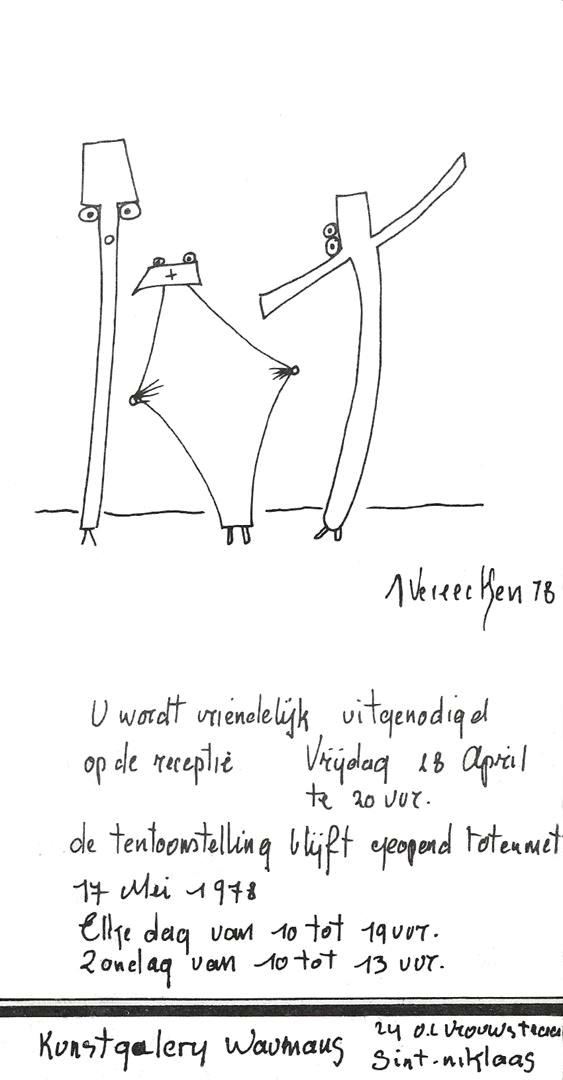 Vereecken 78
U wordt vriendelijk uitgenodigd
op de receptie Vrijdag 28 April
te 20 uur.
de tentoonstelling blijft geopend tot en met
17 Mei 1978
Elke dag van 10 tot 19 uur.
Zondag van 10 tot 13 uur.
Kunstgalery Waumans
24 O.L
Sint-niklaas